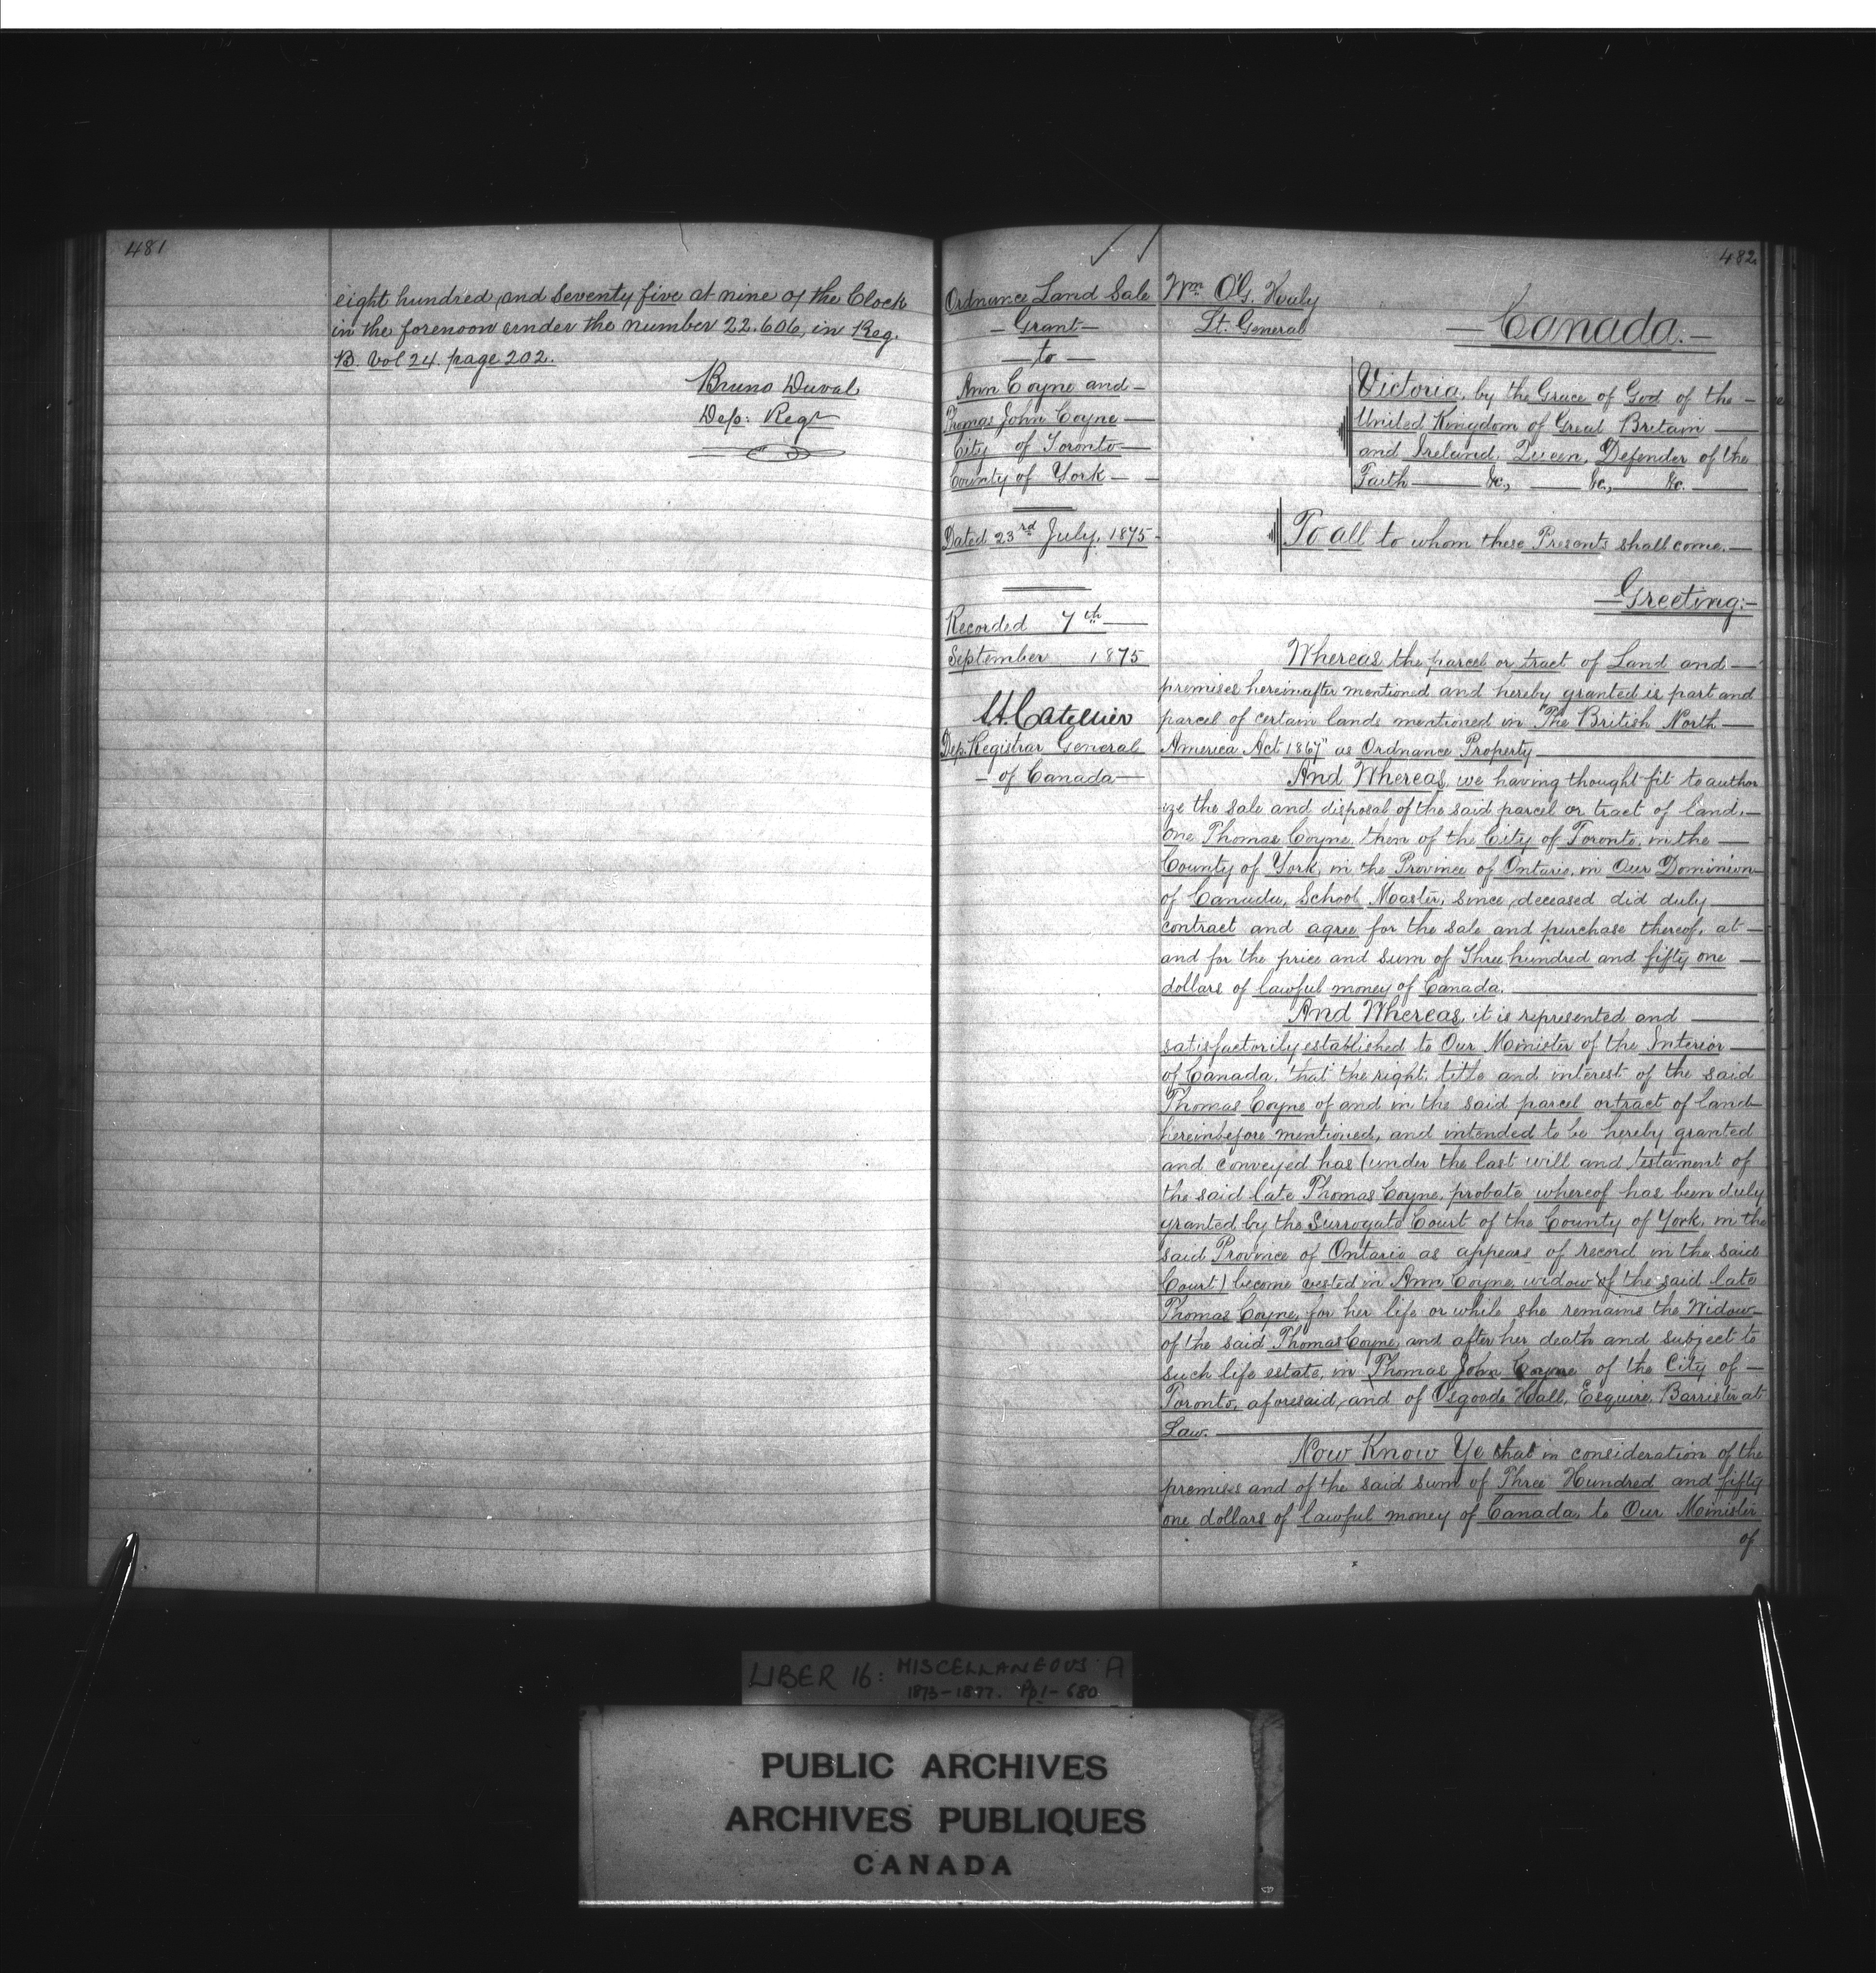 481
eight hundred and Seventy five at nine of the Clock
in the forenoon under the number 22.606, in Reg.
B. Vol 24. page 202.
Bruno Duval
Dep: Regr
482
Ordnance Land Sale
— Grant —
— to —
Ann Coyne and —
Thomas John Coyne —
City of Toronto —
County of York —
Dated 23rd July, 1875 -
Recorded 7th —
September 1875
Catellier
Dep. Registrar General
— of Canada —
Wm O'G. Haly
Lt. General
— Canada. —
Victoria, by the Grace of God of the —
United Kingdom of Great Britain —
and Ireland, Queen, Defender of the
Faith — &c., — &c., — &c. —
To all to whom these Presents shall come. —
— Greeting: —
Whereas the parcel or tract of Land and —
premises hereinafter mentioned and hereby granted is part and
parcel of certain lands mentioned in "The British North —
America Act 1867" as Ordnance Property —
And Whereas, we having thought fit to author
ize the sale and disposal of the said parcel or tract of land, —
One Thomas Coyne, then of the City of Toronto, in the —
County of York, in the Province of Ontario, in Our Dominion —
of Canada, School Master, since deceased did duly —
contract and agree for the sale and purchase thereof, at —
and for the price and sum of Three hundred and fifty one —
dollars of lawful money of Canada. —
And Whereas, it is represented and —
satisfactorily established to Our Minister of the Interior —
of Canada, that the right, title and interest of the said
Thomas Coyne of and in the said parcel or tract of land —
hereinbefore mentioned, and intended to be hereby granted
and conveyed has (under the last will and testament of
the said late Thomas Coyne, probate whereof has been duly
granted by the Surrogate Court of the County of York, in the
said Province of Ontario as appears of record in the said
Court) become vested in Ann Coyne, widow of the said late
Thomas Coyne, for her life or while she remains the Widow —
of the said Thomas Coyne, and after her death and subject to
such life estate, in Thomas John Coyne of the City of —
Toronto, aforesaid, and of Osgoode Hall, Esquire, Barrister at
Law. —
Now Know Ye that in consideration of the
premises and of the said sum of Three Hundred and fifty
one dollars of lawful money of Canada, to Our Minister
of
LIBER 16: MISCELLANEOUS A
1873-1877. Pp 1-680
PUBLIC ARCHIVES
ARCHIVES PUBLIQUES
CANADA